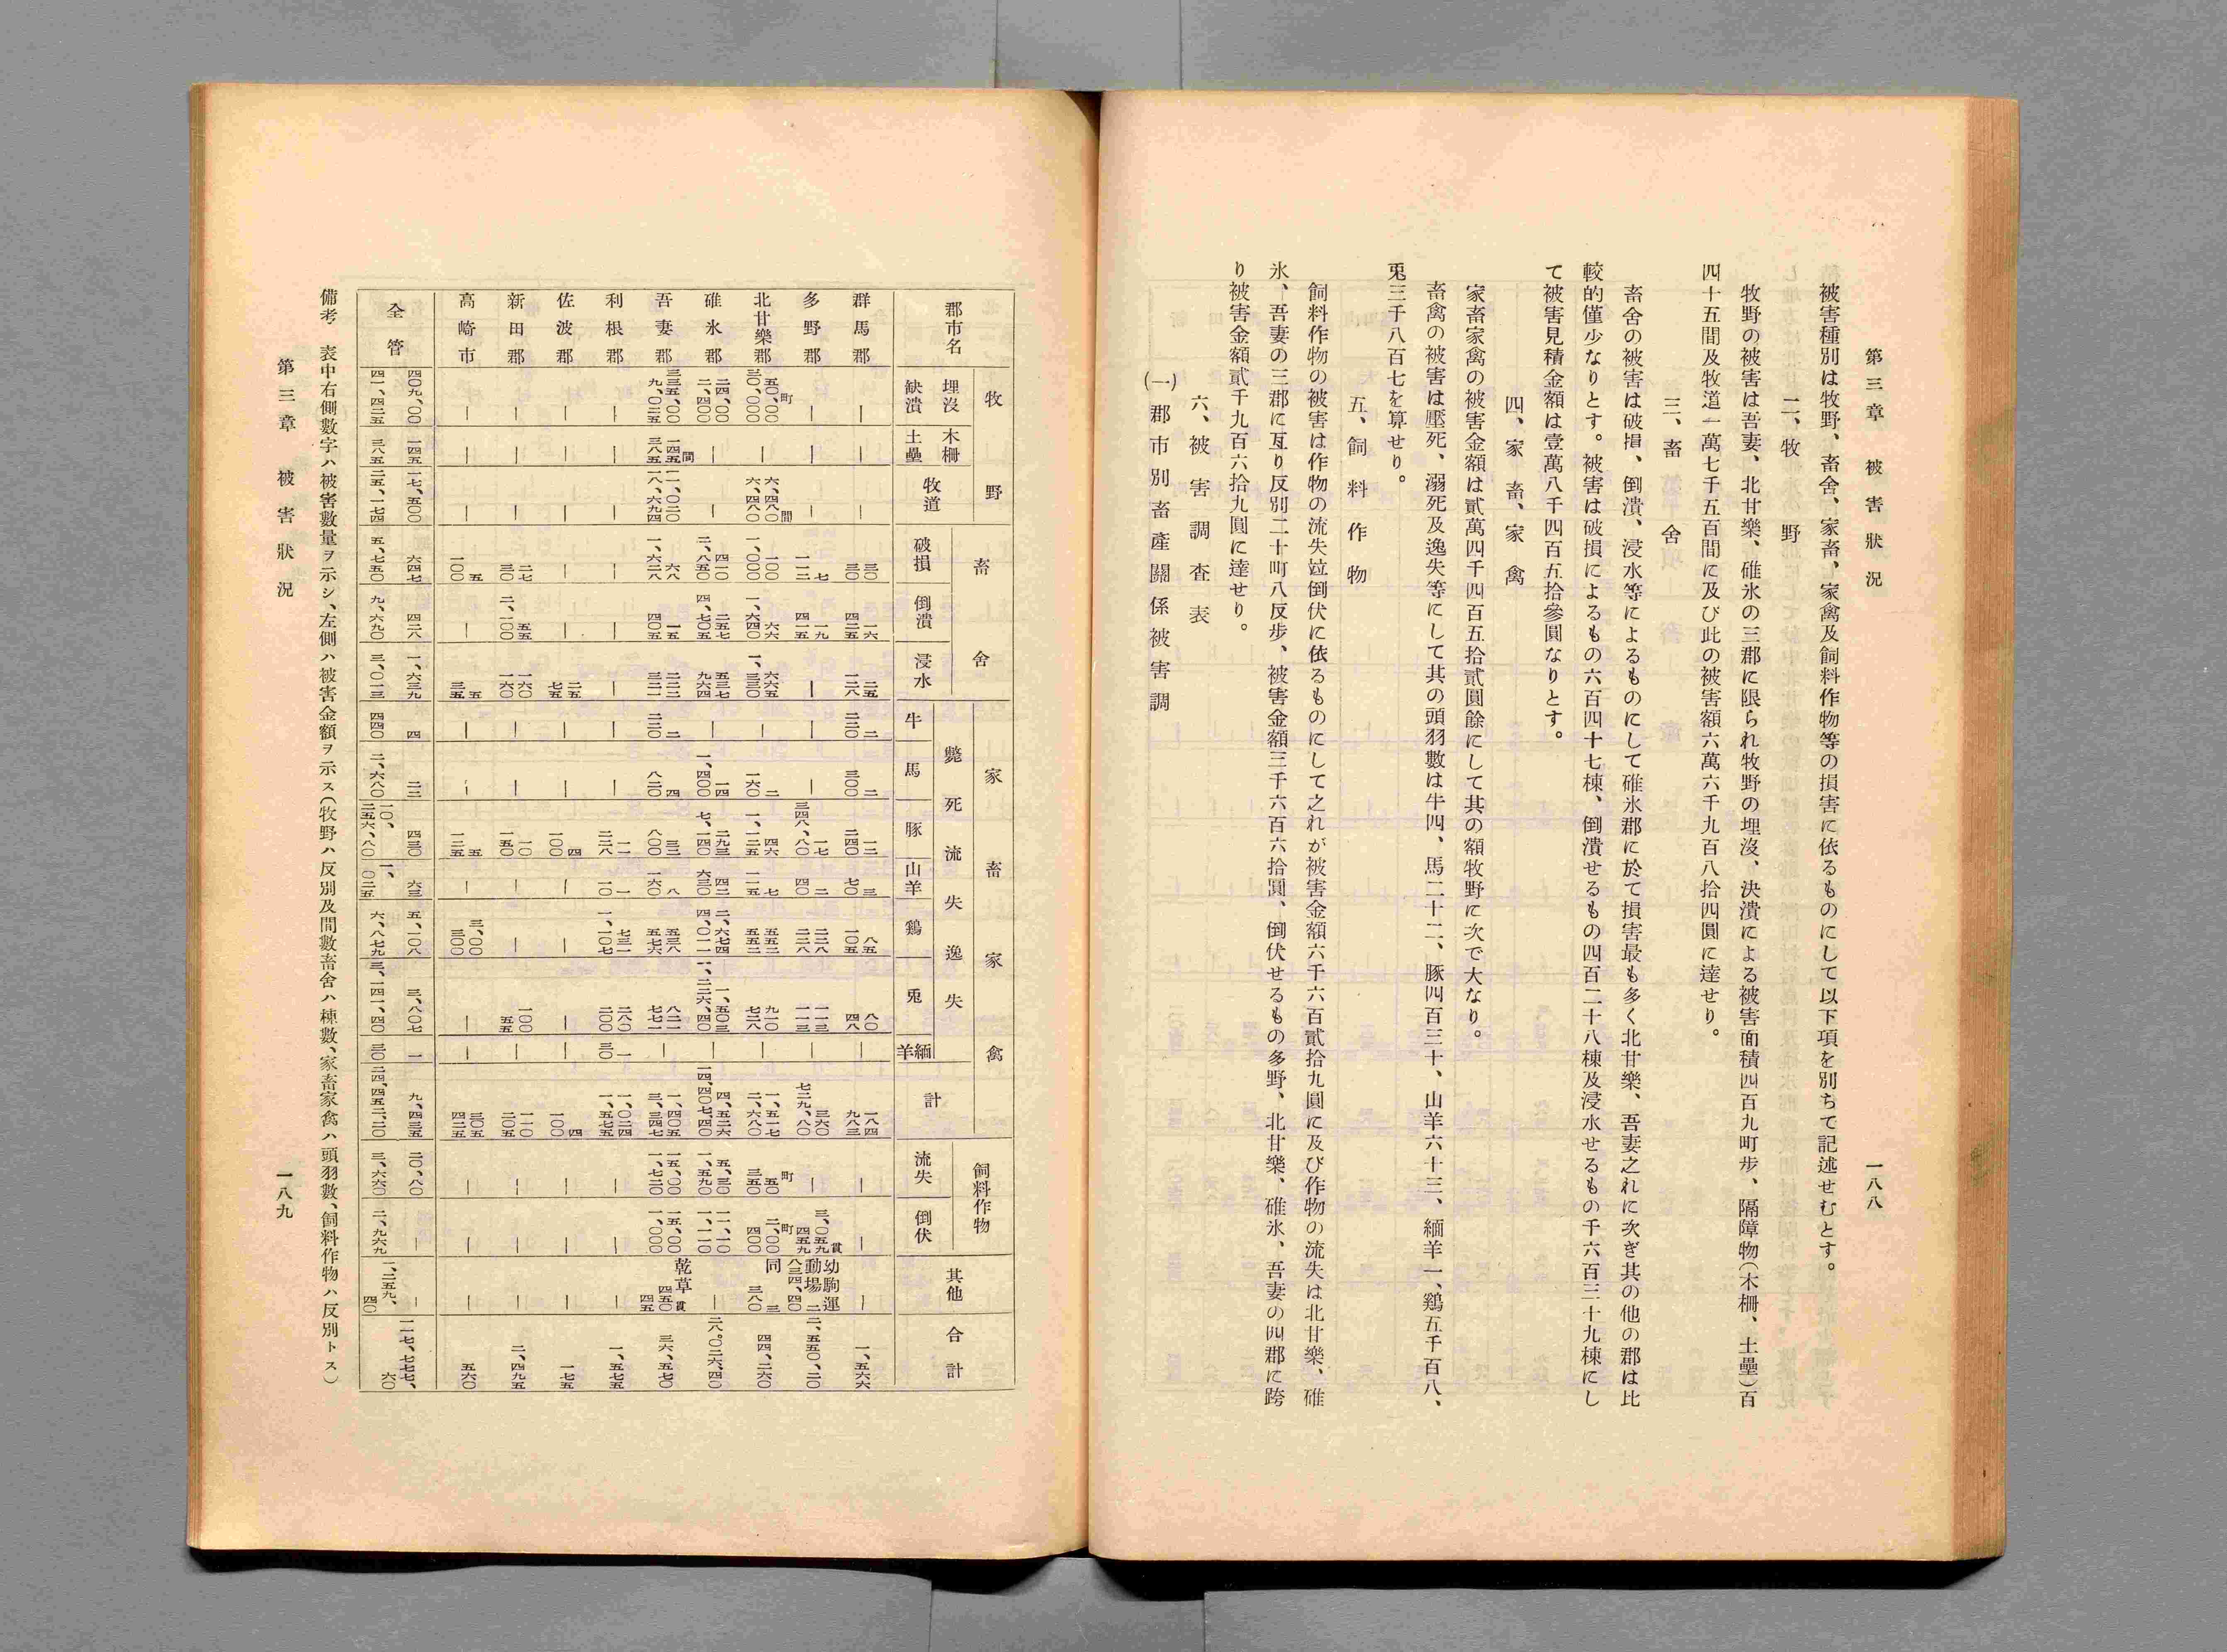 第三章　被害狀況
一八八
被害種別は牧野、畜舍、家畜、家禽及飼料作物等の損害に依るものにして以下項を別ちて記述せむとす。
二、牧野
牧野の被害は吾妻、北甘樂、碓氷の三郡に限られ牧野の埋沒、決潰による被害面積四百九町步、隔障物(木柵、土壘)百
四十五間及牧道一萬七千五百間に及び此の被害額六萬六千九百八拾四圓に達せり。
三、畜舍
畜舍の被害は破損、倒潰、浸水等によるものにして碓氷郡に於て損害最も多く北甘樂、吾妻之れに次ぎ其の他の郡は比
較的僅少なりとす。被害は破損によるもの六百四十七棟、倒潰せるもの四百二十八棟及浸水せるもの千六百三十九棟にし
て被害見積金額は壹萬八千四百五拾參圓なりとす。
四、家畜、家禽
家畜家禽の被害金額は貳萬四千四百五拾貳圓餘にして其の額牧野に次で大なり。
畜禽の被害は壓死、溺死及逸失等にして其の頭羽數は牛四、馬二十二、豚四百三十、山羊六十三、緬羊一、鷄五千百八、
兎三千八百七を算せり。
五、飼料作物
飼料作物の被害は作物の流失竝倒伏に依るものにして之れが被害金額六千六百貳拾九圓に及び作物の流失は北甘樂、碓
氷、吾妻の三郡に亙り反別二十町八反步、被害金額三千六百六拾圓、倒伏せるもの多野、北甘樂、碓氷、吾妻の四郡に跨
り被害金額貳千九百六拾九圓に達せり。
六、被害調査表
(一)郡市別畜產關係被害調
郡市名　牧野　埋沒缺潰　木柵土壘　牧道　畜舍　破損　倒潰　浸水　家畜家禽　斃死流失逸失　牛　馬　豚　山羊　鷄　兎　緬羊　計　飼料作物　流失　倒伏　其他　合計
群馬郡　｜　｜　｜　三〇　三〇　一六　四二五　二五　一二八　二　二二〇　二　三〇〇　一二　二四〇　三　七〇　八五　一〇五　八〇　四八　｜　一八四　九八三　｜　｜　｜　一、五六六
多野郡　｜　｜　｜　七　一一二　一九　四一五　｜　｜　｜　一七　三四八、八〇　二　四〇　二二八　二二八　一一三　一一三　｜　三六〇　七二九、八〇　｜　三、〇五九貫　四五九　幼駒運動場　二　八三四、四〇　二、五五〇、二〇
北甘樂郡　五〇、〇〇町　三〇、〇〇〇　｜　六、四八〇間　六、四八〇　一〇〇　一、〇〇〇　六六　一、六四〇　六六五　一、三三〇　｜　二　一六〇　四六　一、一二五　七　一一五　五五二　五五二　九一〇　七二八　｜　一、五一七　二、六八〇　五〇町　三五〇　二、〇〇町　四〇〇　同　三　三八〇　四四、二六〇
碓氷郡　二四、〇〇　二、四〇〇　｜　｜　四一〇　二、八五〇　二五七　四、七〇五　五三七　九六四　｜　一四　一、四〇〇　二九三　七、一四〇　四二　六三〇　二、六七四　四、〇一一　一、五〇三　一、二二六、四〇　｜　四、五二六　一四、四〇七、四〇　五、三〇　一、五九〇　一一、一〇　一、一一〇　｜　二八、〇二六、四〇
吾妻郡　三三五、〇〇　九、〇二五　一四五間　三八五　一一、〇二〇　一八、六九四　六八　一、六二八　一五　四〇五　二二二　三二一　二　二二〇　四　八二〇　三二　八〇〇　八　一六〇　五三八　五七六　八二一　七七一　｜　一、四〇五　三、三四七　一五、〇〇　一、七二〇　一五、〇〇　一、〇〇〇　乾草　四五〇貫　四五　三六、五七〇
利根郡　｜　｜　｜　｜　｜　｜　｜　｜　一一　二二八　一　一〇　七三一　一、一〇七　二八〇　二〇〇　一　三〇　一、〇二四　一、五七五　｜　｜　｜　一、五七五
佐波郡　｜　｜　｜　｜　｜　二五　七五　｜　｜　四　一〇〇　｜　｜　｜　｜　四　一〇〇　｜　｜　｜　一七五
新田郡　｜　｜　｜　二七　三〇　五五　二、一〇〇　一六〇　一六〇　｜　｜　一〇　一五〇　｜　｜　一〇〇　五五　｜　一一〇　二〇五　｜　｜　｜　二、四九五
高崎市　｜　｜　｜　五　一〇〇　｜　五　三五　｜　｜　五　一二五　｜　三、〇〇　三〇〇　｜　｜　三〇五　四二五　｜　｜　｜　五六〇
全管　四〇九、〇〇　四一、四二五　一四五　三八五　一七、五〇〇　二五、一七四　六四七　五、七五〇　四二八　九、六九〇　一、六三九　三、〇一三　四　四四〇　二二　二、六八〇　四三〇　一〇、二五六、八〇　六三　一、〇二五　五、一〇八　六、八七九　三、八〇七　三、一四一、四〇　一　三〇　九、四三五　二四、四五二、二〇　二〇、八〇　三、六六〇　｜　二、九六九　｜　一、二五九、四〇　一一七、七七七、六〇
備考　表中右側數字ハ被害數量ヲ示シ、左側ハ被害金額ヲ示ス(牧野ハ反別及間數畜舍ハ棟數、家畜家禽ハ頭羽數、飼料作物ハ反別トス)
第三章　被害狀況
一八九